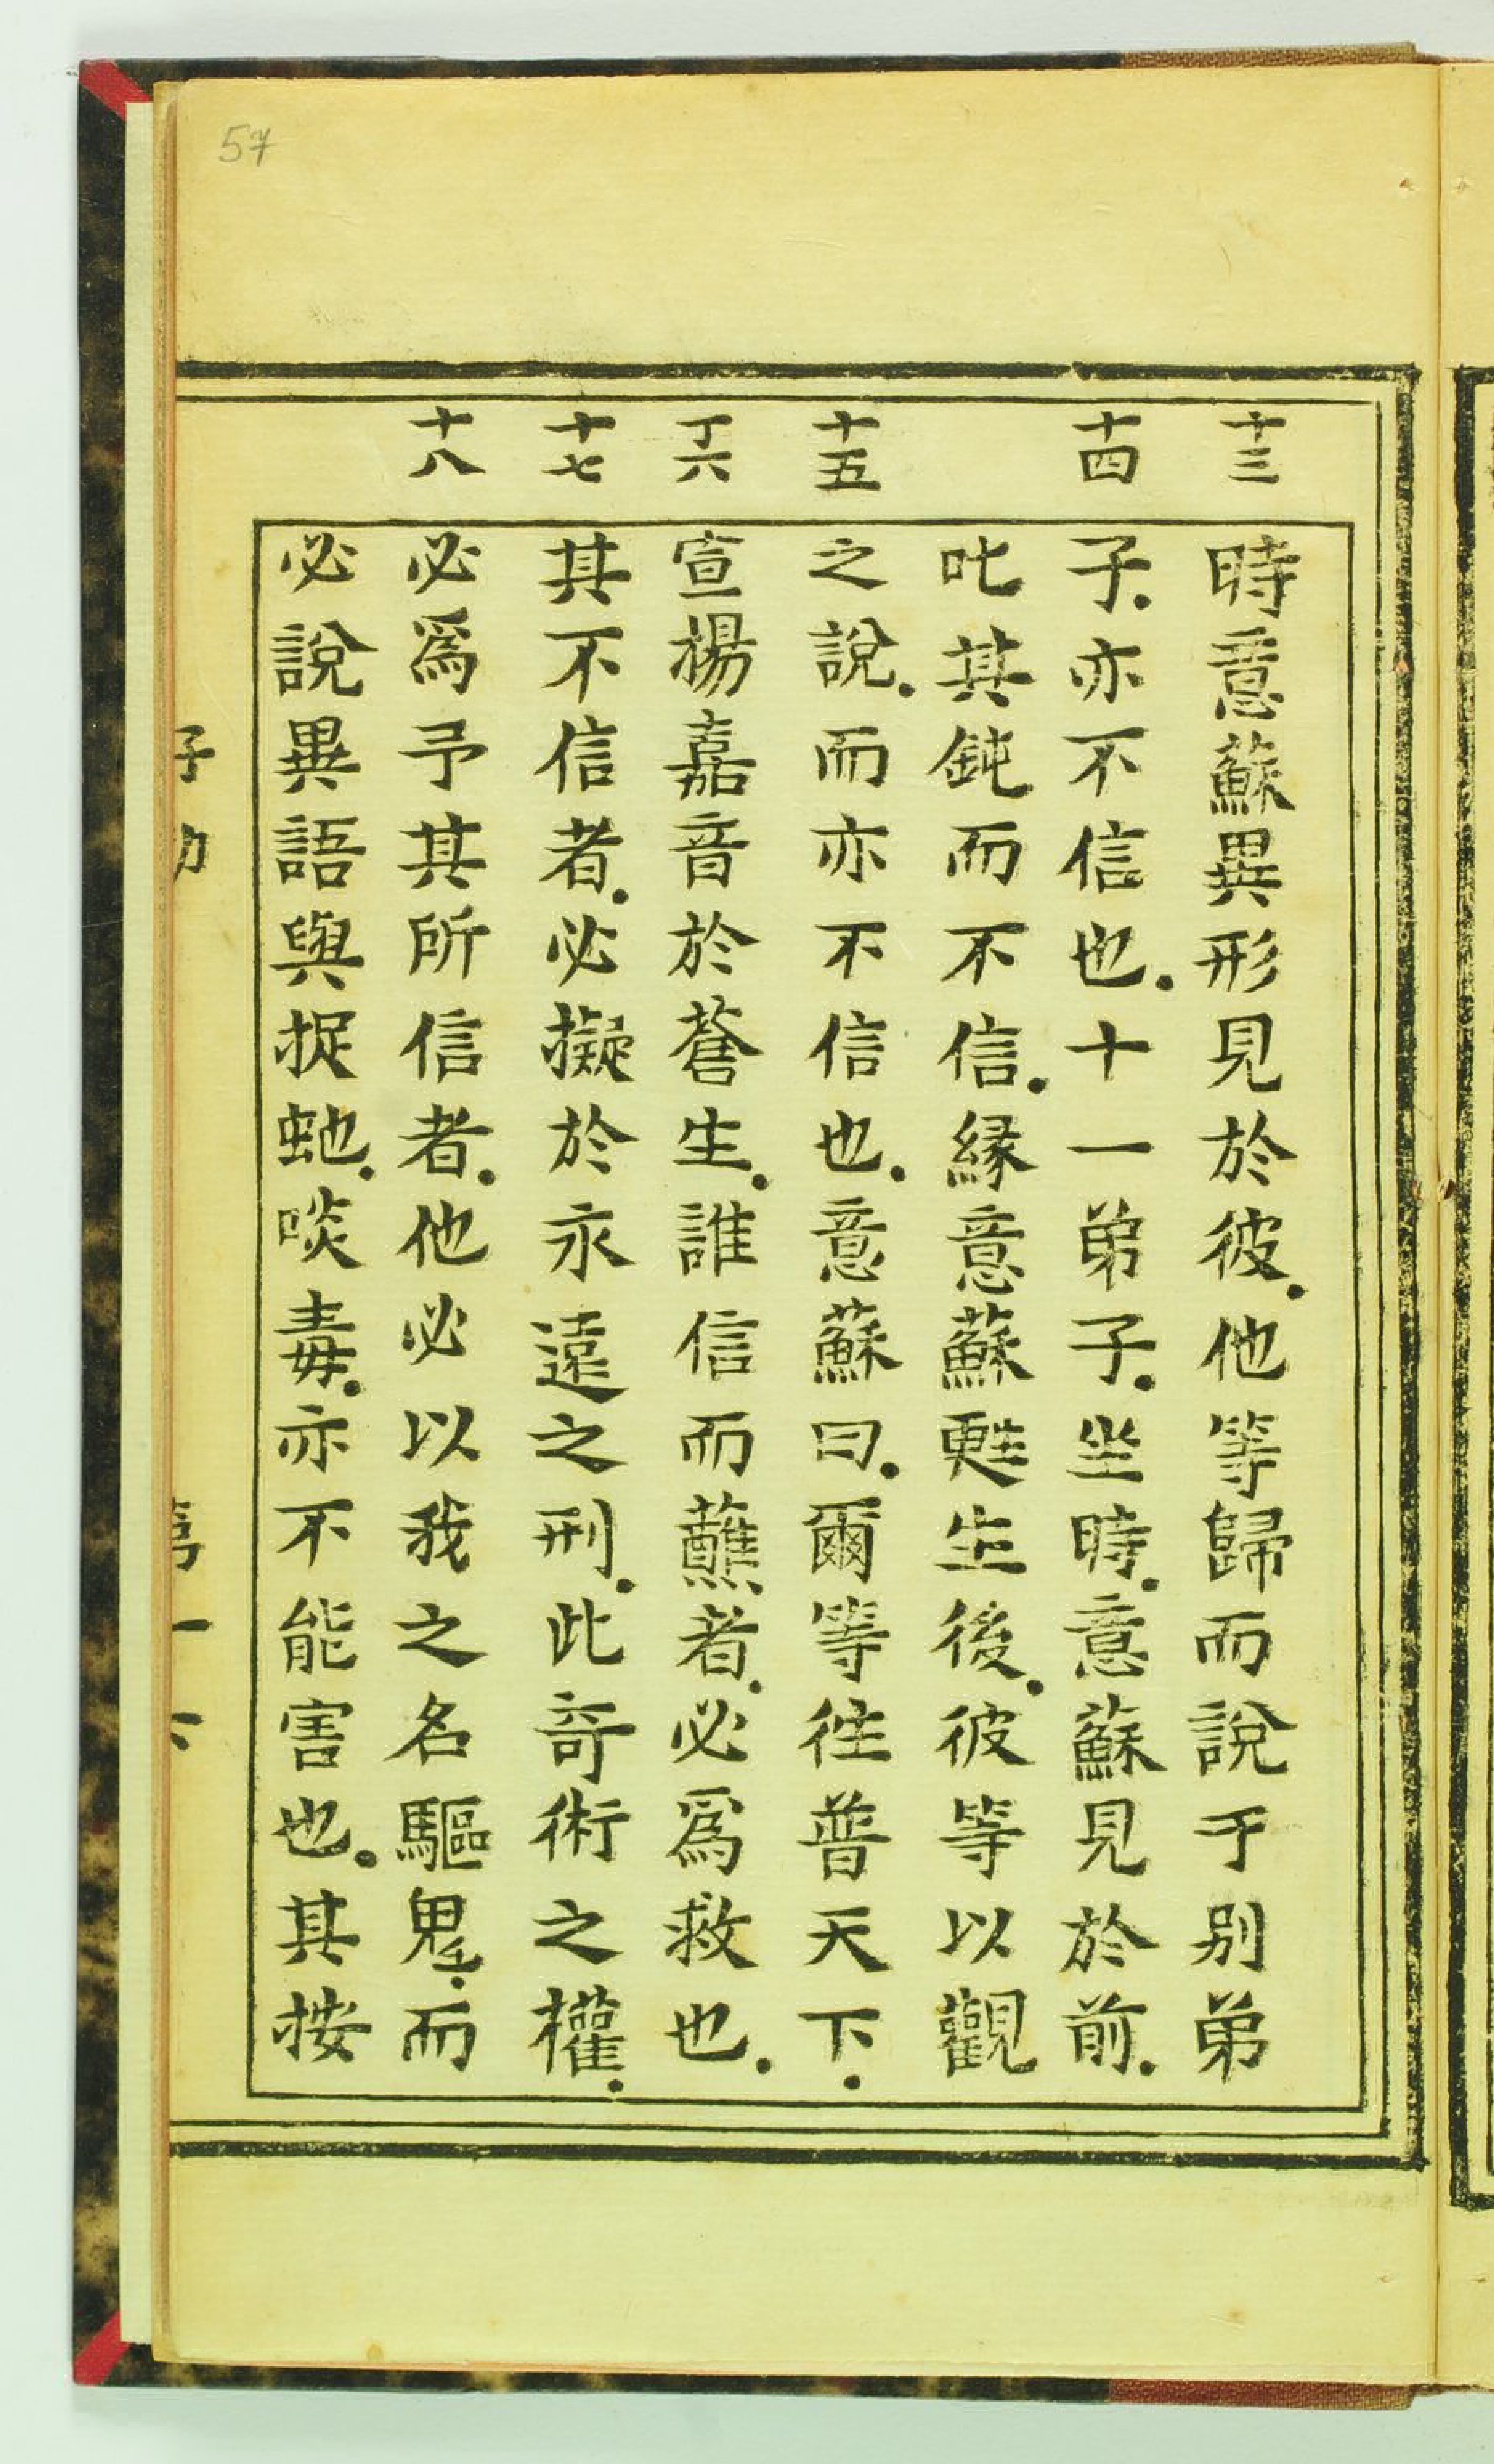 57
十三
十四
十五
十六
十七
十八
時意蘇異形見於彼.他等歸而說于别弟
子.亦不信也.十一弟子.坐時.意蘇見於前.
叱其鈍而不信.縁意蘇甦生後.彼等以觀
之說.而亦不信也.意蘇曰.爾等往普天下.
宣揚嘉音於蒼生.誰信而蘸者.必爲救也.
其不信者.必擬於永遠之刑.此竒術之權.
必爲予其所信者.他必以我之名驅鬼.而
必說異語與捉虵.啖毒.亦不能害也.其按